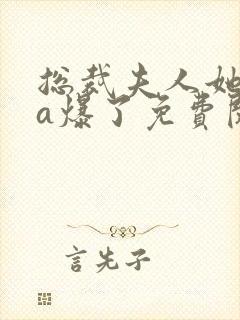 总裁夫人她
a爆了免费
言先子